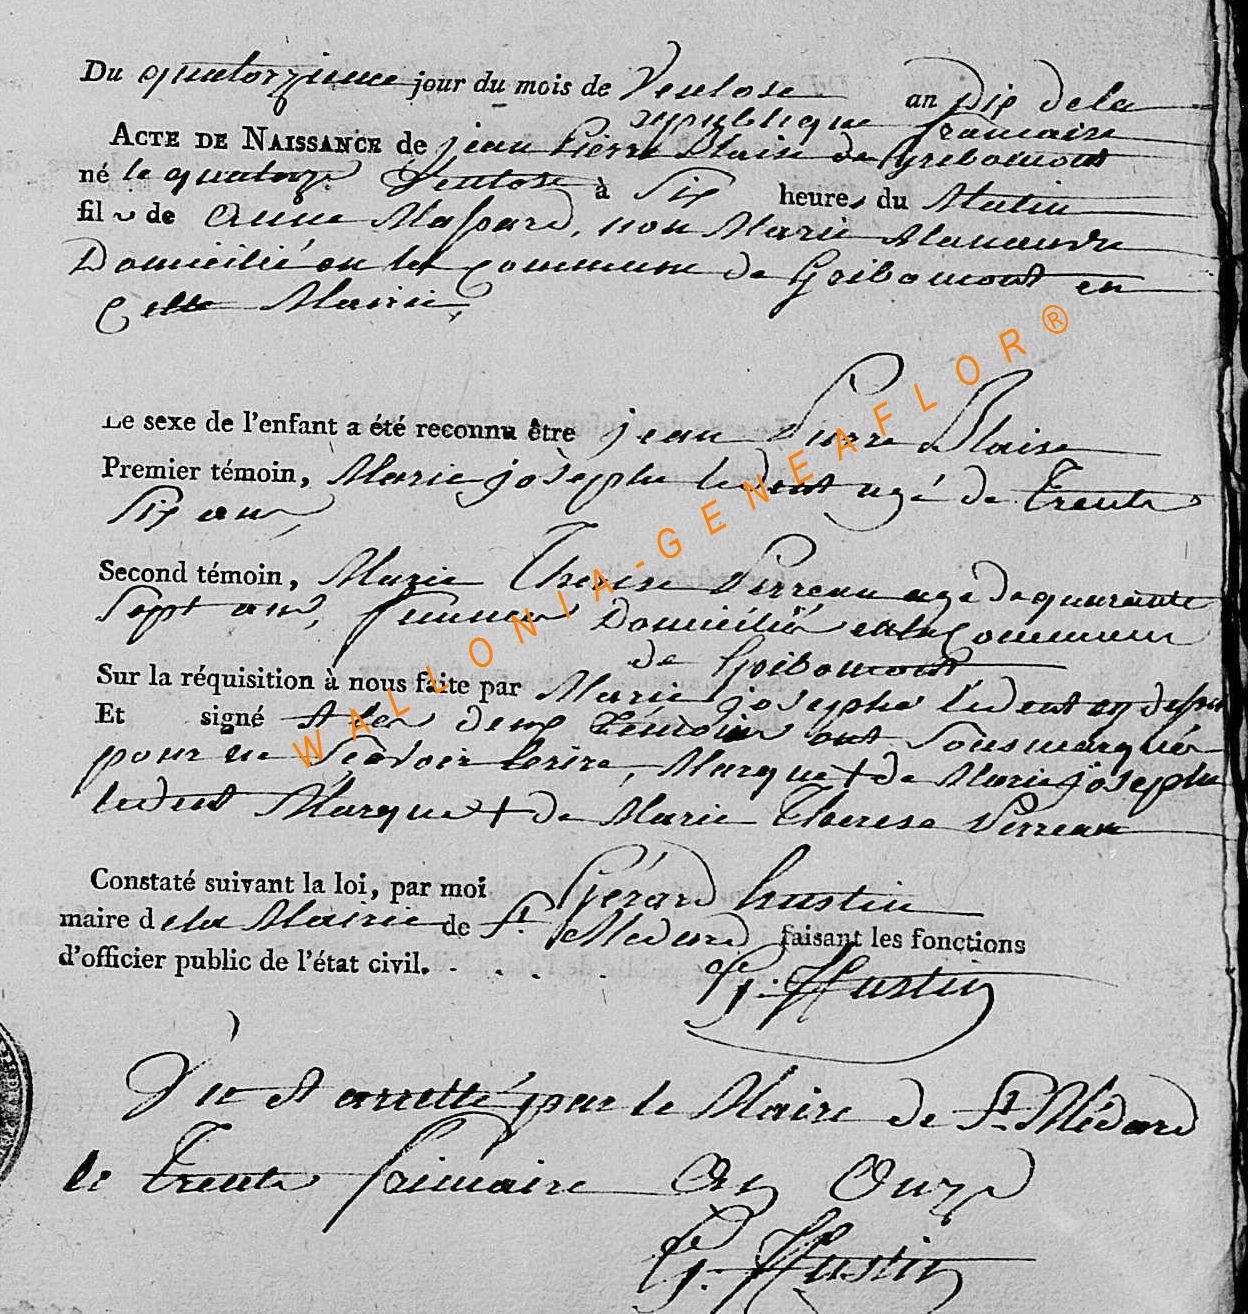 Du quatorzieme jour du mois de Ventose an Dix de la
republique francaise
ACTE DE NAISSANCE de jean Pierre Blaise de Gribomont
né le quatorze Ventose à Six heures du Matin
fils de Anne Maßard, non Marié Manœuvre
Domicilié en la Commune de Gribomont en
Cette Mairie,
Le sexe de l'enfant a été reconnu être jean Pierre Blaise
Premier témoin, Marie josephe ledent agé de Trente
Six ans
Second témoin, Marie Therese Pierreau agé de quarante
Sept ans, femmes Domiciliés en la Commune
de Gribomont
Sur la réquisition à nous faite par Marie josephe ledent
Et signé et les deux témoins ont Sousmarqués
pour ne Scavoir Ecrire, Marque + de Marie josephe
ledent Marque + de Marie Therese Pierreau
Constaté suivant la loi, par moi Gérard hustin
maire de la Mairie de St. Médard faisant les fonctions
d'officier public de l'état civil. . . . . .
G. Hustin
Vu et arretté par le Maire de St. Médard
le Trente frimaire An Onze
G. Hustin
WALLONIA-GENEAFLOR®